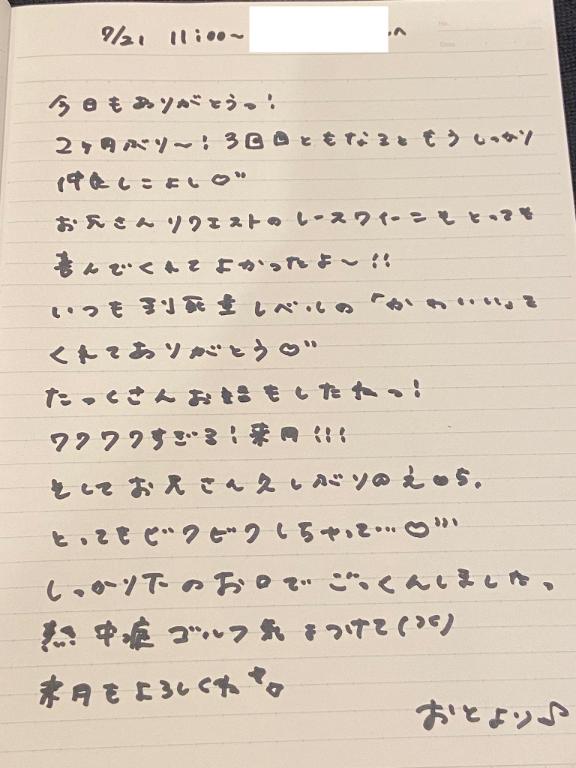 7/21 11:00~ へ
今日もありがとうっ!
2ヶ月ぶり〜!3回目ともなるともうしっかり
仲良しこよし♡"
お兄さんリクエストのレースクイーンもとっても
喜んでくれてよかったよ〜!!
いつも致死量レベルの「かわいい」を
くれてありがとう♡"
たっくさんお話もしたねっ!
ワクワクすごる!来月!!!
そしてお兄さん久しぶりのえ♡ち。
とってもビクビクしちゃって…♡"'
しっかり下のお口でごっくんしましたっ
熱中症ゴルフ気をつけて(><)
来月もよろしくね
おとより♪